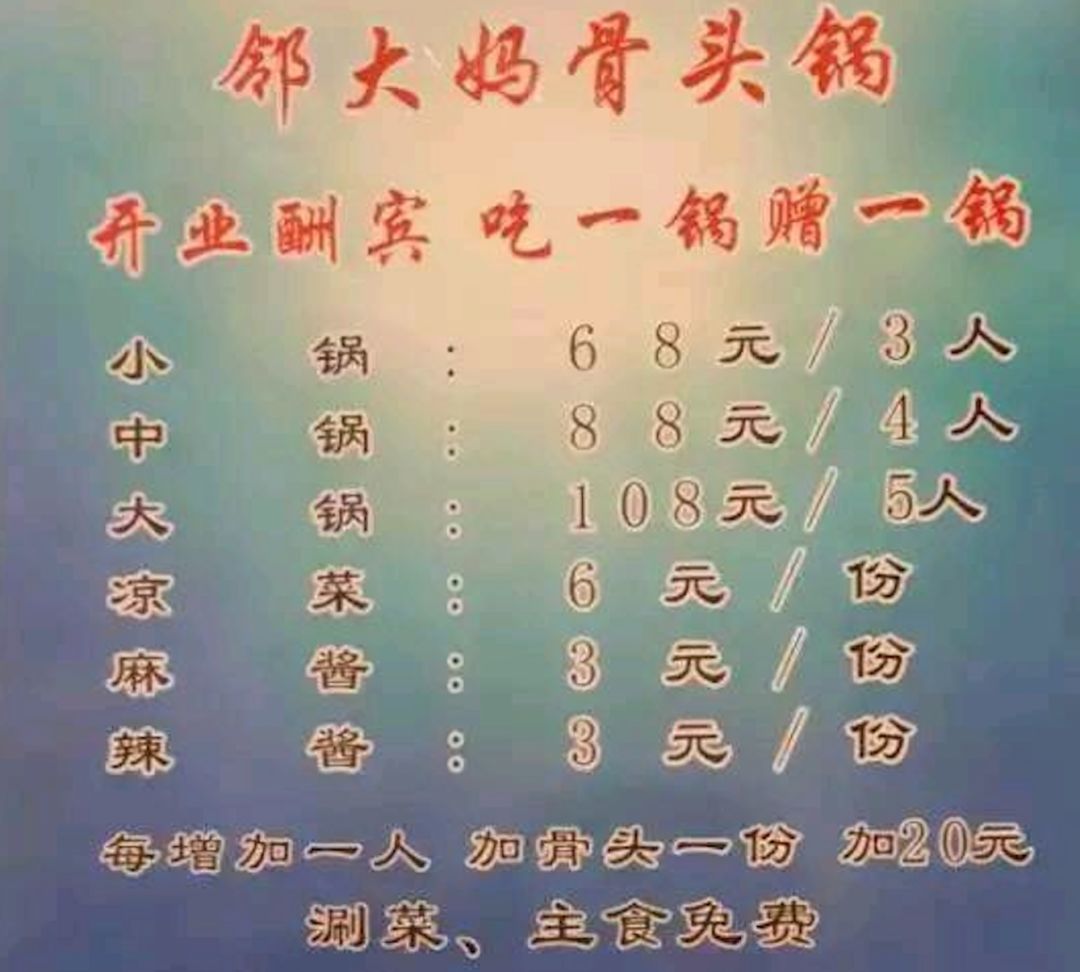 邻大妈骨头锅
开业酬宾 吃一锅赠一锅
小锅：68元/3人
中锅：88元/4人
大锅：108元/5人
凉菜：6元/份
麻酱：3元/份
辣酱：3元/份
每增加一人 加骨头一份 加20元
涮菜、主食免费